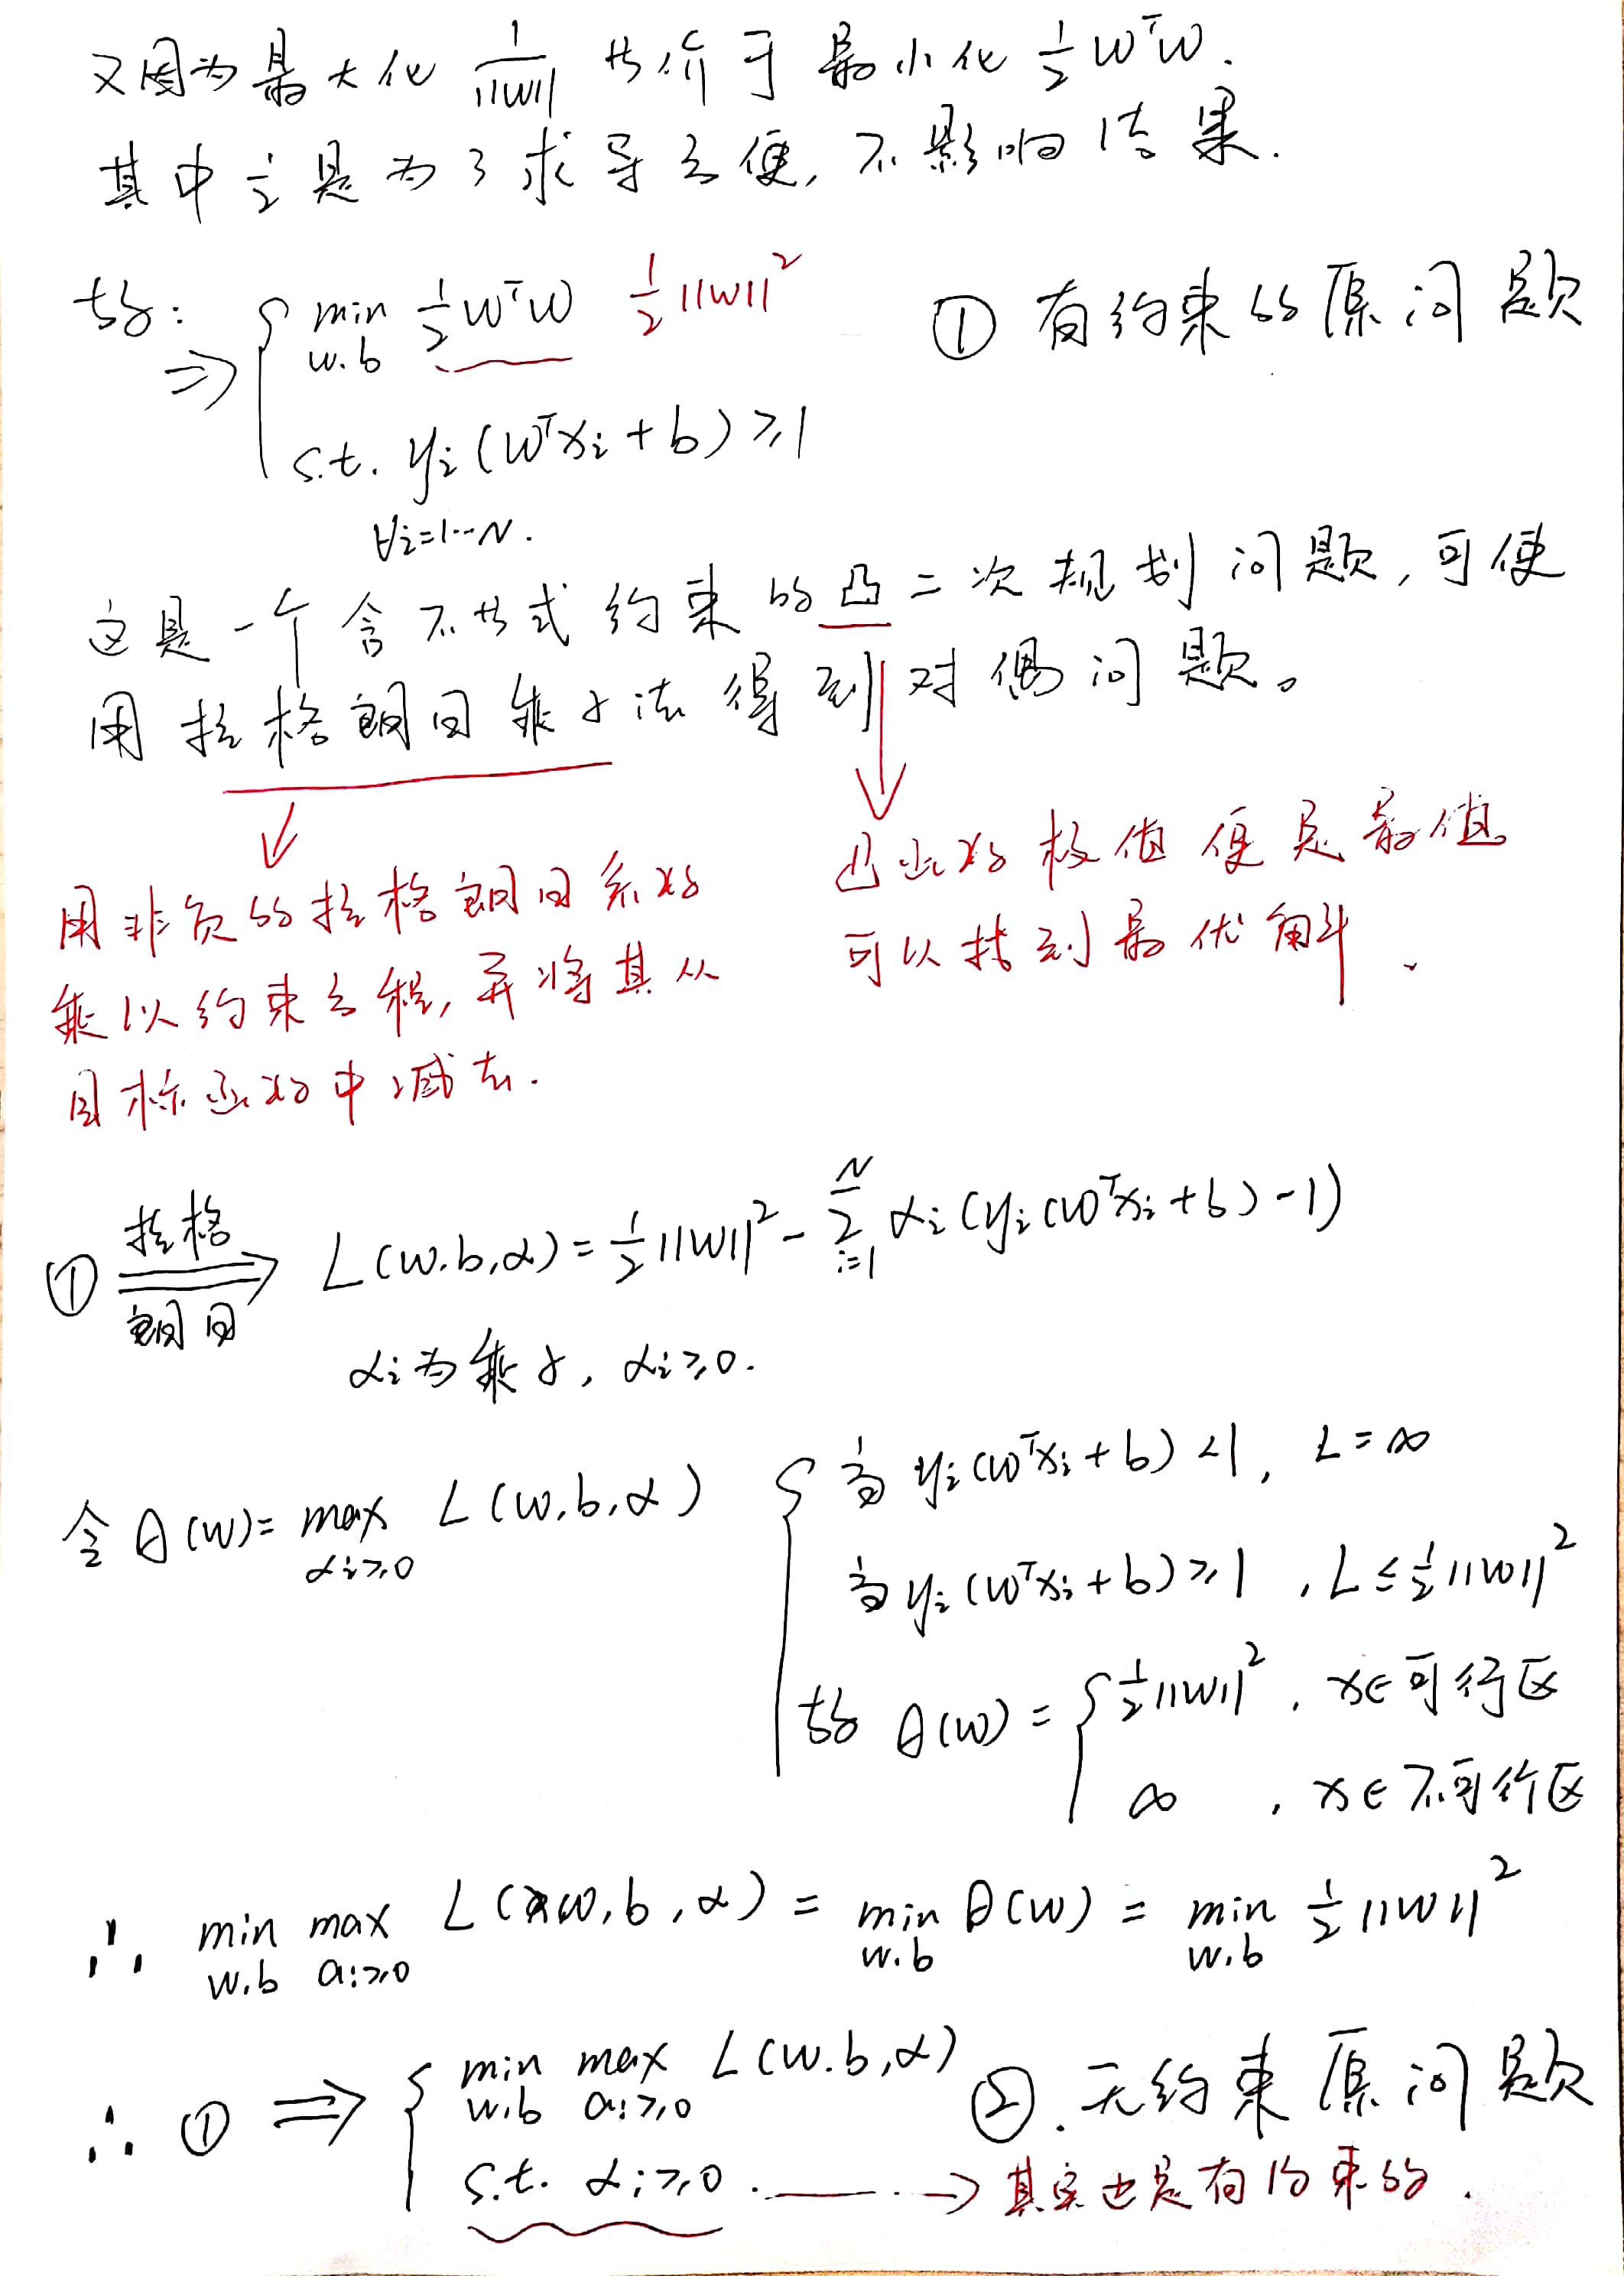 又因为最大化 1/||W|| 等价于最小化 ½WᵀW.
其中½是为了求导方便, 不影响结果.
故: ⇒ { min w.b ½WᵀW ½||W||² ① 有约束的原问题
s.t. yᵢ(Wᵀxᵢ+b)≥1
∀i=1…N.
这是一个含不等式约束的凸二次规划问题, 可使
用拉格朗日乘子法得到对偶问题。
用非负的拉格朗日系数
乘以约束方程, 并将其从
目标函数中减去.
凸函数极值便是最值。
可以找到最优解、
① 拉格朗日 ⇒ L(w.b,α)=½||W||²-∑ᵢ₌₁ᴺ αᵢ(yᵢ(wᵀxᵢ+b)-1)
αᵢ为乘子, αᵢ≥0.
令 θ(w)= max αᵢ≥0 L(w,b,α) { 当 yᵢ(wᵀxᵢ+b)<1, L=∞
当 yᵢ(wᵀxᵢ+b)≥1, L≤½||w||²
故 θ(w)= { ½||W||², x∈可行区
∞, x∈不可行区
∴ min w.b max aᵢ≥0 L(w,b,α) = min w.b θ(w) = min w.b ½||W||²
∴ ① ⇒ { min w.b max aᵢ≥0 L(w.b,α) ②. 无约束原问题
s.t. αᵢ≥0. → 其实也是有约束的.